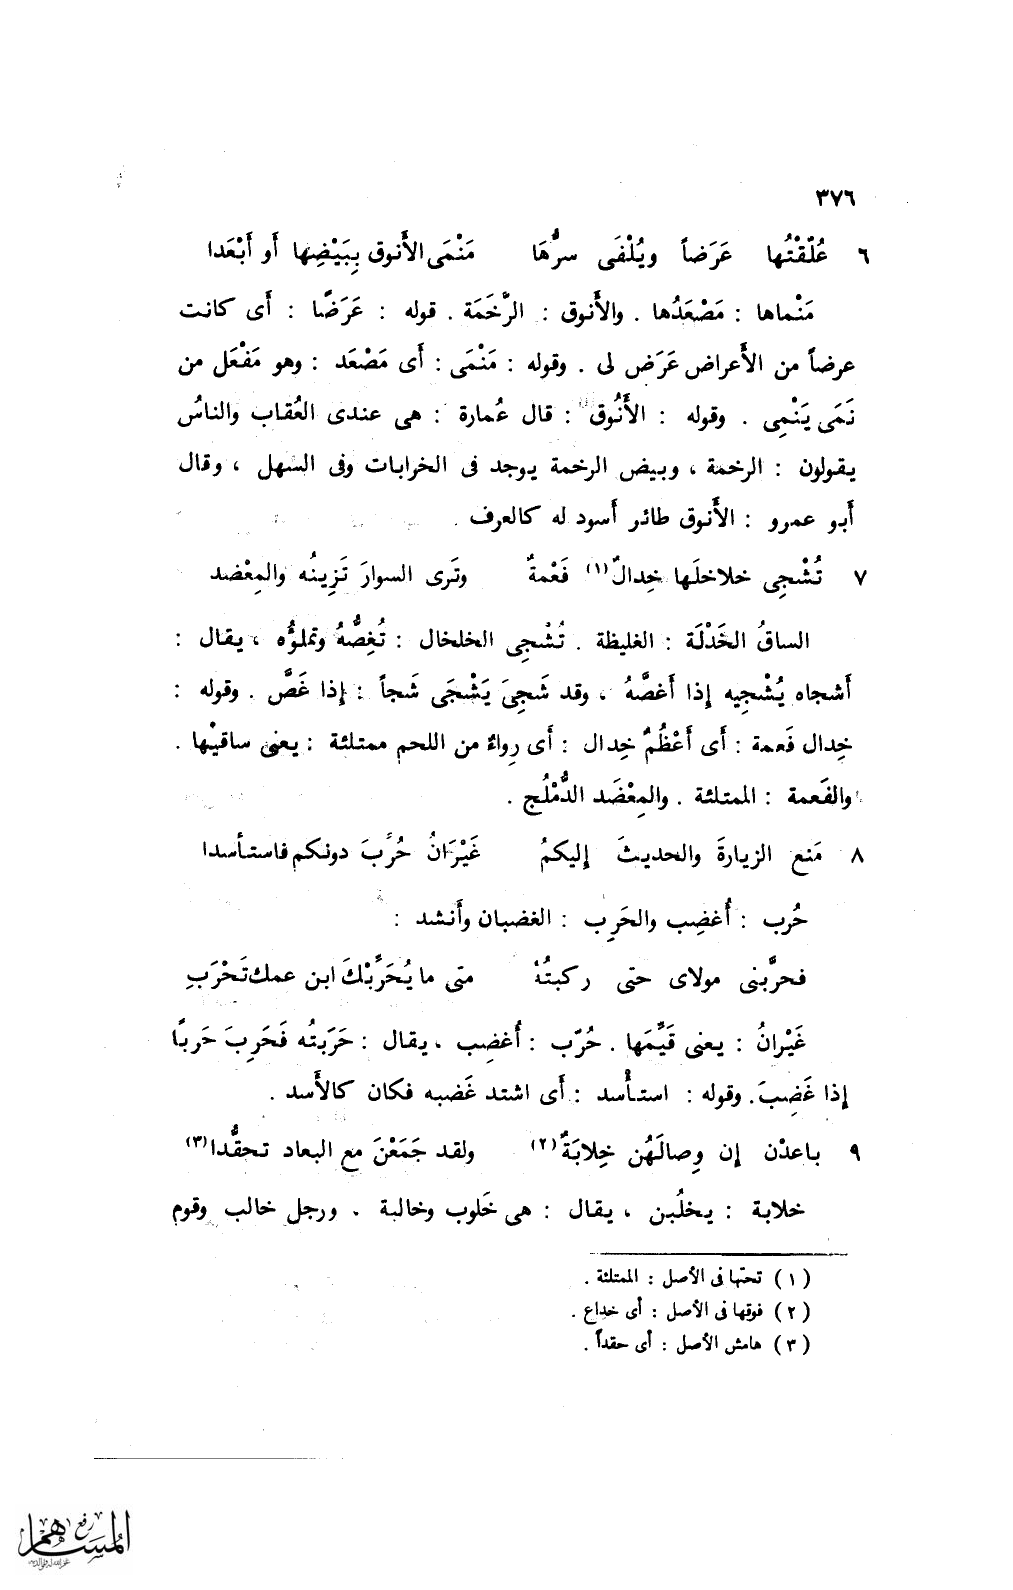 ٣٧٦
٦ عُلّقْتُها عَرَضاً ويُلْفَى سرُّهَا مَنْمَى الأَنوق بِبَيْضِها أَو أَبْعَدا
مَنْماها : مَصْعَدُها . والأَنوق : الرَّخَمَة . قوله : عَرَضًا : أَى كانت
عرضاً من الأَعراض عَرَض لى . وقوله : مَنْمَى : أَى مَصْعَد : وهو مَفْعَل من
نَمَى يَنْمِى . وقوله : الأَنُوق : قال عُمارة : هى عندى العُقاب والناسُ
يقولون : الرخمة ، وبيض الرخمة يوجد فى الخرابات وفى السهل ، وقال
أَبو عمرو : الأَنوق طائر أَسود له كالعرف .
٧ تُشْجِى خلاخلَها خِدالٌ(١) فَعْمةٌ وتَرى السوارَ تَزِينُه والمِعْضد
الساقُ الخَدْلَة : الغليظة . تُشْجِى الخلخال : تُغِصُّهُ وتملؤُه ، يقال :
أَشجاه يُشْجِيه إِذا أَغصَّهُ ، وقد شَجِىَ يَشْجَى شَجاً : إِذا غَصَّ . وقوله :
خِدال فَعمة : أَى أَعْظُمٌ خِدال : أَى رِواءٌ من اللحم ممتلئة : يعنى ساقيْها .
والفَعمة : الممتلئة . والمِعْضَد الدُّمْلُج .
٨ مَنع الزيارةَ والحديثَ إِليكمُ غَيْرَانُ حُرِّبَ دونكم فاستأسدا
حُرب : أُغضِب والحَرِب : الغضبان وأَنشد :
فحرَّبنى مولاى حتى ركبتُهُ متى ما يُحَرِّبْكَ ابن عمك تَحْرَبِ
غَيْرانُ : يعنى قَيِّمَها . حُرّب : أُغضِب ، يقال : حَرَبتُه فَحَرِبَ حَرباً
إِذا غَضِبَ . وقوله : استأْسد : أَى اشتد غَضبه فكان كالأَسد .
٩ باعدْن إِن وِصالَهُن خِلابَةٌ(٢) ولقد جَمَعْنَ مع البعاد تحقُّدا(٣)
خلابة : يخلُبن ، يقال : هى خَلوب وخالبة . ورجل خالب وقوم
(١) تحتها فى الأصل : الممتلئة .
(٢) فوقها فى الأصل : أى خداع .
(٣) هامش الأصل : أى حقداً .